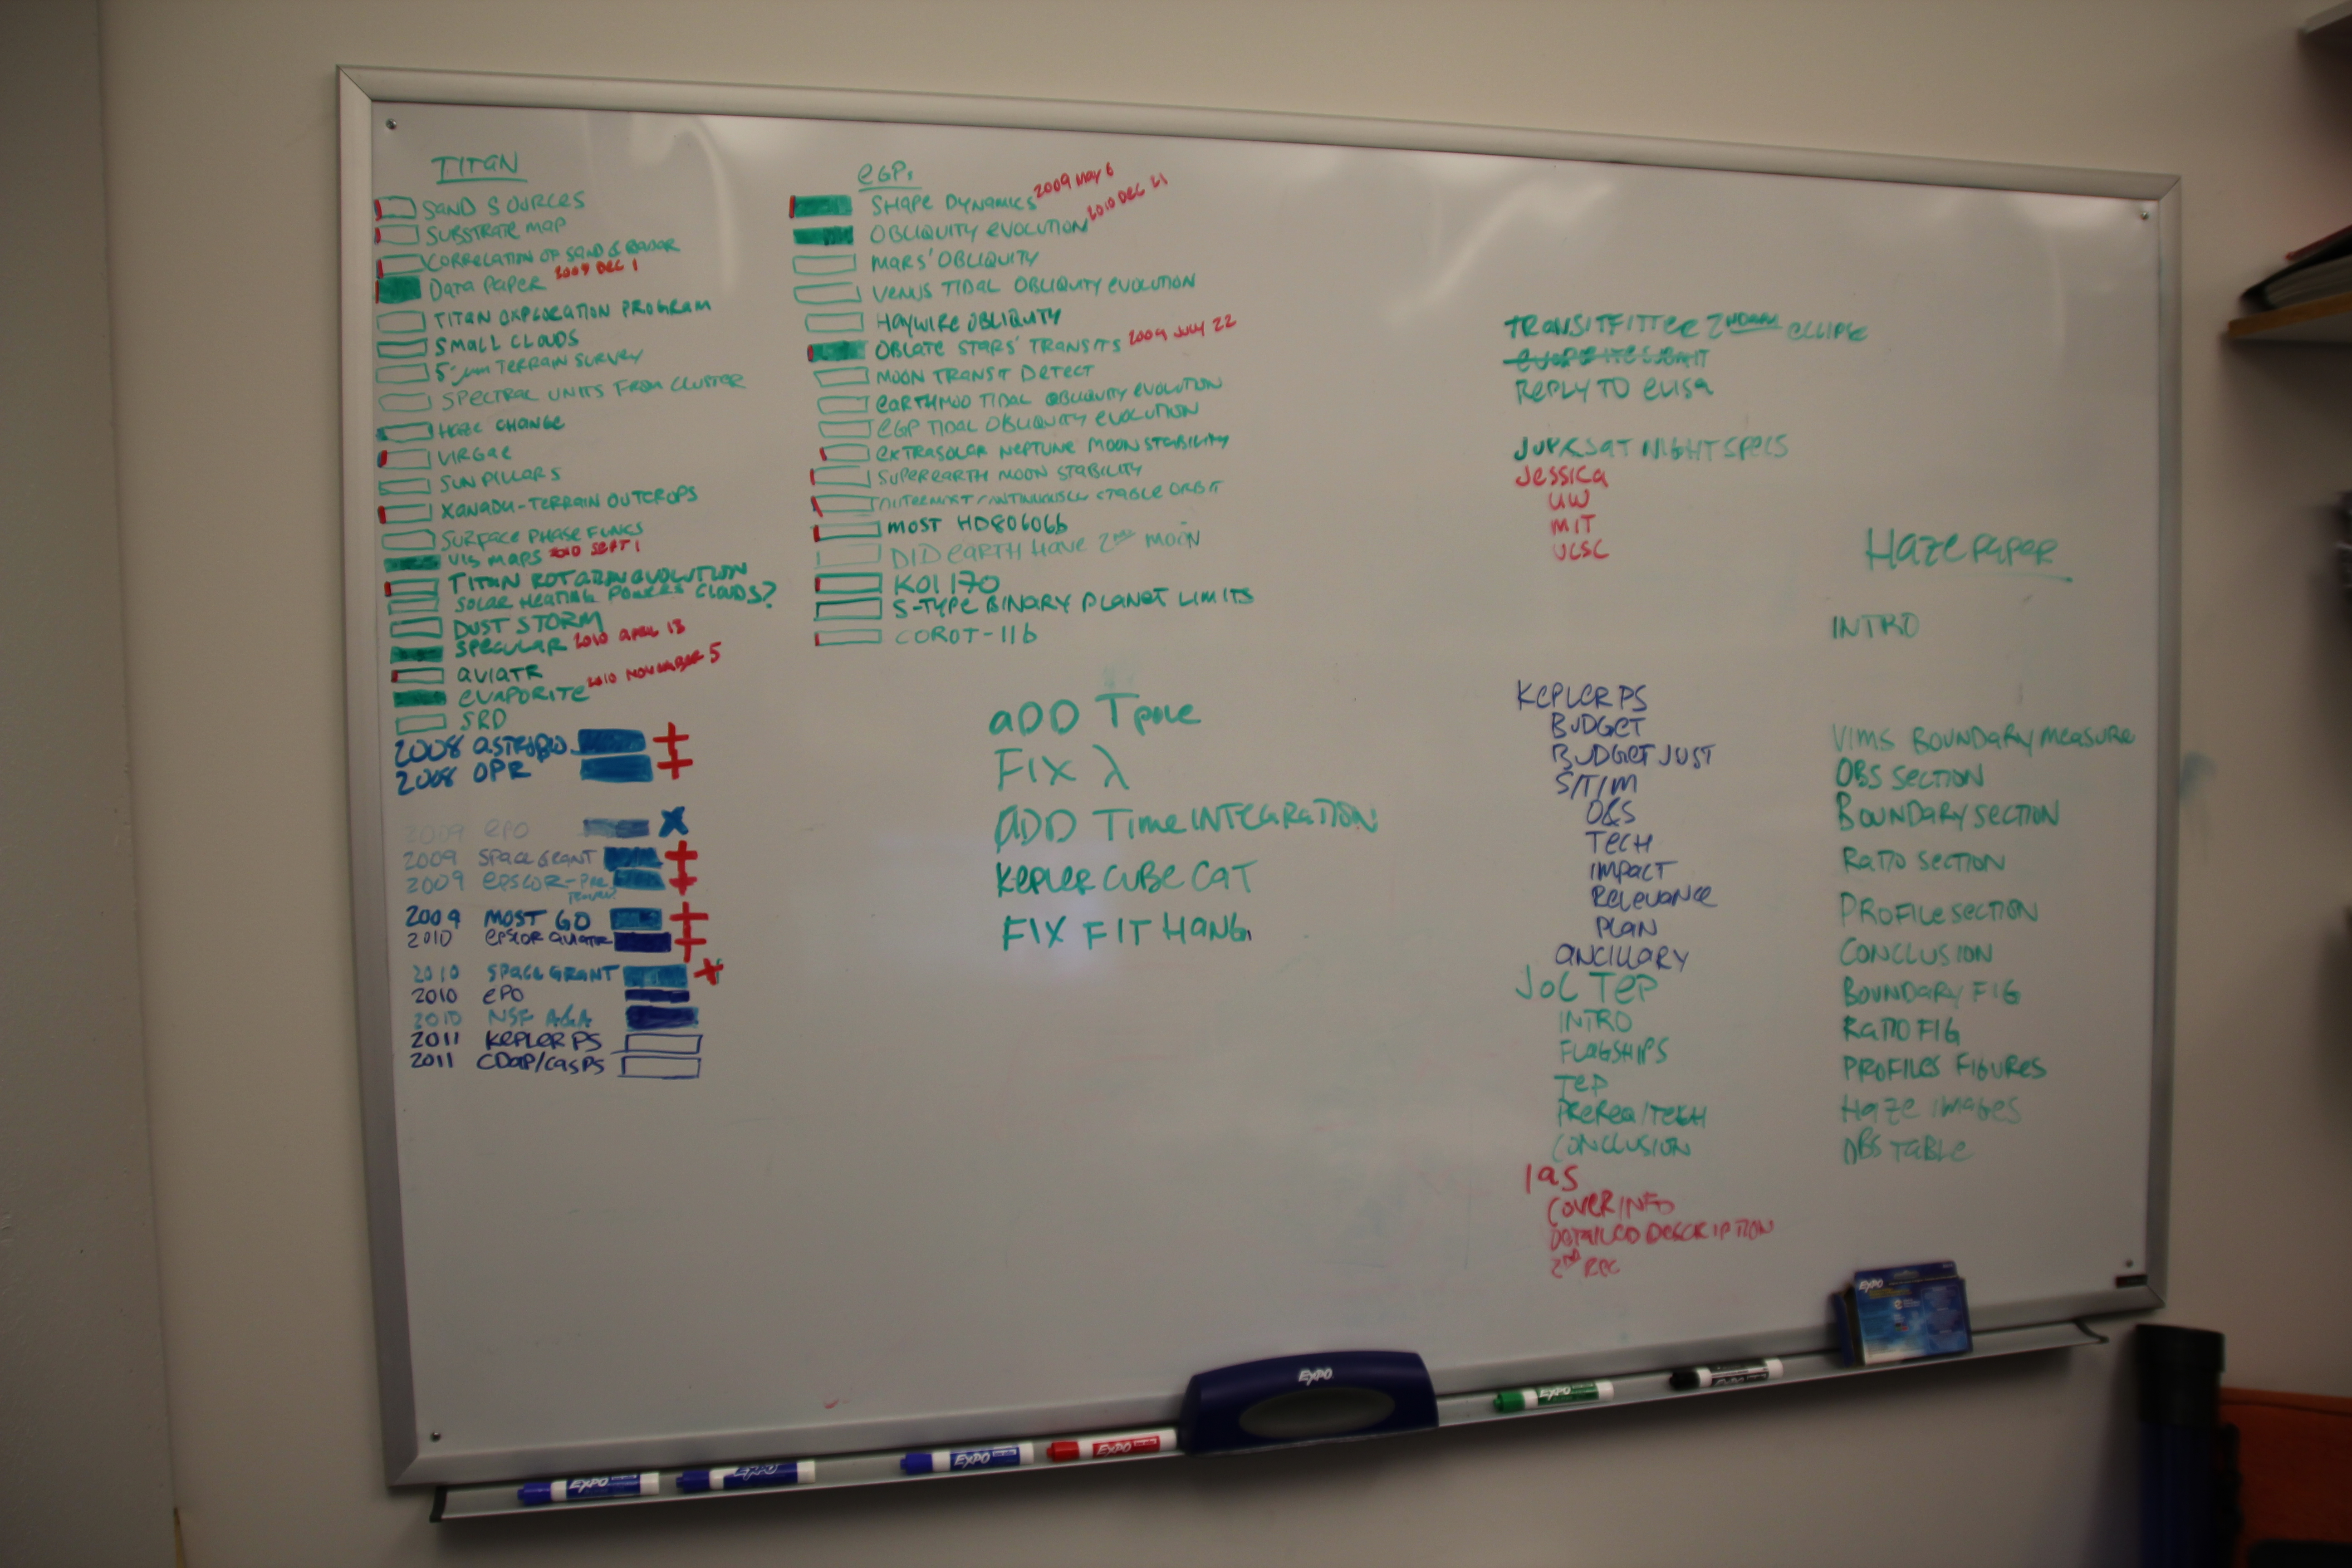 TITAN
SAND SOURCES
SUBSTRATE MAP
CORRELATION OF SAND & RADAR
DATA PAPER 2009 DEC 1
TITAN EXPLORATION PROGRAM
SMALL CLOUDS
5-μm TERRAIN SURVEY
SPECTRAL UNITS FROM CLUSTER
HAZE CHANGE
VIRGAE
SUN PILLARS
XANADU-TERRAIN OUTCROPS
SURFACE PHASE FUNCS
VIS MAPS 2010 SEPT 1
TITAN ROTATION EVOLUTION
SOLAR HEATING POWERS CLOUDS?
DUST STORM
SPECULAR 2010 APRIL 13
AVIATR
EVAPORITE 2010 NOVEMBER 5
SRD
2008 ASTROBIO +
2008 OPR +
2009 EPO X
2009 SPACE GRANT +
2009 EPSCOR-PRE +
2009 MOST GO +
2010 EPSCOR AVIATR +
2010 SPACE GRANT +
2010 EPO
2010 NSF A&A
2011 KEPLER PS
2011 CDAP/CASPS
EGPs
SHAPE DYNAMICS 2009 MAY 6
OBLIQUITY EVOLUTION 2010 DEC 21
MARS' OBLIQUITY
VENUS TIDAL OBLIQUITY EVOLUTION
HAYWIRE OBLIQUITY
OBLATE STARS' TRANSITS 2009 JULY 22
MOON TRANSIT DETECT
EARTHMOO TIDAL OBLIQUITY EVOLUTION
EGP TIDAL OBLIQUITY EVOLUTION
EXTRASOLAR NEPTUNE MOON STABILITY
SUPEREARTH MOON STABILITY
CONTINUOUSLY STABLE ORBIT
MOST HD80606b
DID EARTH HAVE 2ND MOON
KOI 170
S-TYPE BINARY PLANET LIMITS
COROT-11b
ADD Tpole
FIX λ
ADD Time INTEGRATION
KEPLER CUBE CAT
FIX FIT HANG
TRANSITFITTER 2NDARY ECLIPSE
EVAPORITE SUBMIT
REPLY TO ELISA
JUP&SAT NIGHT SPECS
JESSICA
UW
MIT
UCSC
KEPLER PS
BUDGET
BUDGET JUST
S/T/M
O&S
TECH
IMPACT
RELEVANCE
PLAN
ANCILLARY
JOC TEP
INTRO
FLAGSHIPS
TEP
PREREQ/TECH
CONCLUSION
IAS
COVER INFO
DETAILED DESCRIPTION
2ND REC
HAZE PAPER
INTRO
VIMS BOUNDARY MEASURE
OBS SECTION
BOUNDARY SECTION
RATIO SECTION
PROFILE SECTION
CONCLUSION
BOUNDARY FIG
RATIO FIG
PROFILES FIGURES
HAZE IMAGES
OBS TABLE
EXPO
EXPO
EXPO
EXPO
EXPO
EXPO
EXPO
EXPO